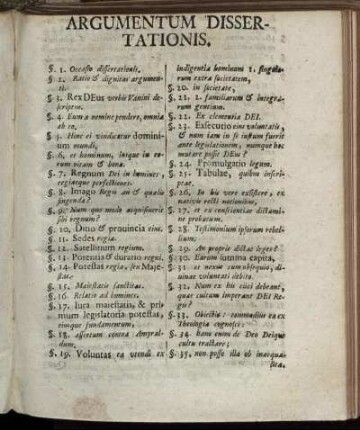 ARGUMENTUM DISSER-
TATIONIS.
§. 1. Occasio dissertationis,
§. 2. Ratio & dignitas argumen-
ti.
§. 3. Rex DEus verbis Vanini de-
scriptus.
§. 4. Eum a nemine pendere, omnia
ab eo,
§. 5. Hinc ei vindicatur domini-
um mundi,
§. 6. et hominum, inque in eo-
rum vitam & bona.
§. 7. Regnum Dei in homines
regiaeque perfectiones.
§. 8. Imago Regis an & qualis
fingenda?
§. 9. Num quo modo acquisiuerit
sibi regnum?
§. 10. Ditio & prouincia eius.
§. 11. Sedes regia.
§. 12. Satellitium regium.
§. 13. Potentia & duratio regni.
§. 14. Potestas regia, seu Maje-
stas.
§. 15. Maiestatis sanctitas.
§. 16. Relatio ad homines.
§. 17. Iura maiestatis, & pri-
mum legislatoria potestas,
eiusque fundamentum,
§. 18. assertum contra
§. 19. Voluntas ea utendi ex
indigentia hominum 1. singulo-
rum extra societatem,
§. 20. in societate,
§. 21. 2. familiarum & integra-
rum gentium.
§. 22. Ex clementia DEI.
§. 23. Exsecutio eius voluntatis,
& num iam in se iustum fuerit
ante legislationem, numque hoc
mutare posse DEus?
§. 24. Promulgatio legum.
§. 25. Tabulae, quibus inscri-
ptae.
§. 26. In his vero exsistere, ex
nativis recti notionibus,
§. 27. et ex conscientiae dictami-
ne probatum.
§. 28. Testimonium ipsorum rebel-
lium.
§. 29. An proprie dictae leges?
§. 30. Earum summa capita,
§. 31. et nexus cum obsequio, di-
uinae voluntati debito.
§. 32. Num ex his elici debeant,
quae cultum imperant DEI Re-
gis?
§. 33. Obiectio: commoditus ea ex
Theologia cognosci:
§. 34. hanc enim de Deo Deique
cultu tractare;
§. 35. non posse illa ob inaequa-
lita-